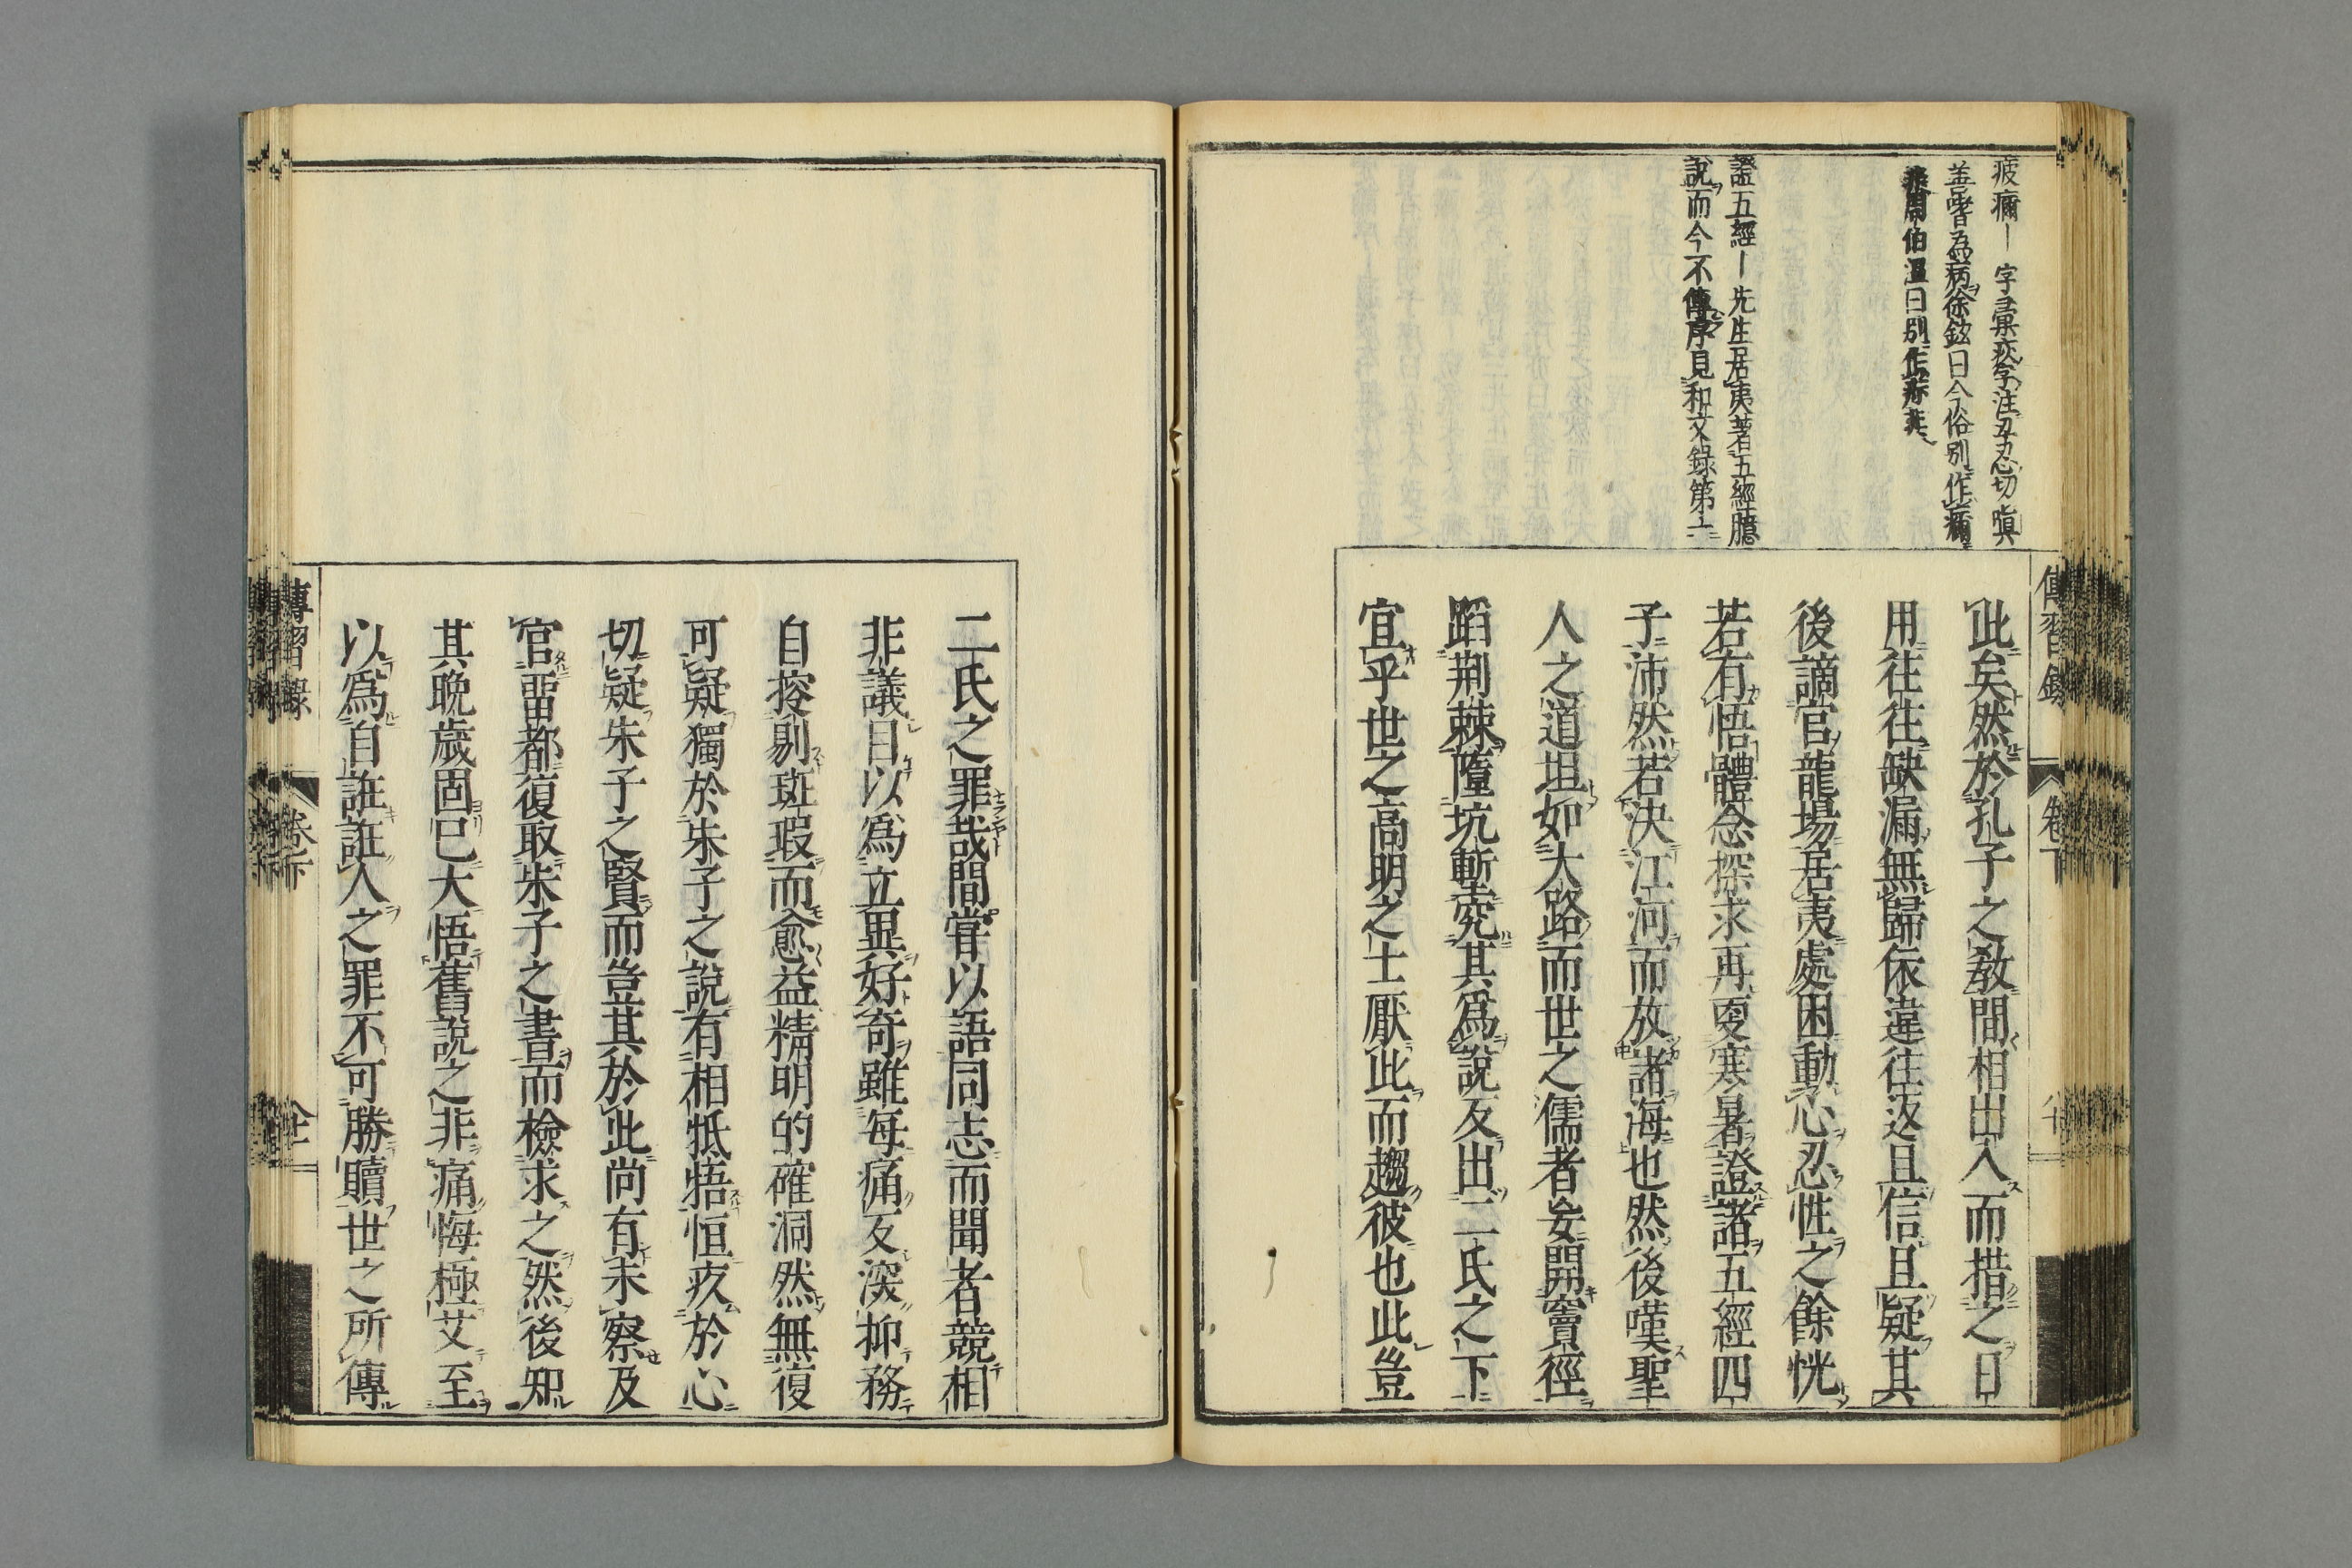 疲痾｜字彙疢字注丑刃切嗔
蓋嘗為病徐鉉曰今俗別作
周伯溫曰別作非
證五經｜先生居夷著五經臆
說而今不傳序見和文錄第二
此矣然於孔子之敎間相出入而措之日
用往往缺漏無歸依違往返且信且疑其
後謫官龍場居夷處困動心忍性之餘恍
若有悟體念探求再更寒暑證諸五經四
子沛然若決江河而放諸海也然後嘆聖
人之道坦如大路而世之儒者妄開竇徑
蹈荆棘墮坑塹究其爲說反出二氏之下
宜乎世之高明之士厭此而趨彼也此豈
傳習錄
卷下
二氏之罪哉間嘗以語同志而聞者競相
非議目以爲立異好奇雖每痛反深抑務
自搜剔斑瑕而愈益精明的確洞然無復
可疑獨於朱子之說有相牴牾恒疚於心
切疑朱子之賢而豈其於此尚有未察及
官畱都復取朱子之書而檢求之然後知
其晩歲固已大悟舊說之非痛悔極艾至
以爲自誑誑人之罪不可勝贖世之所傳
傳習錄
卷下